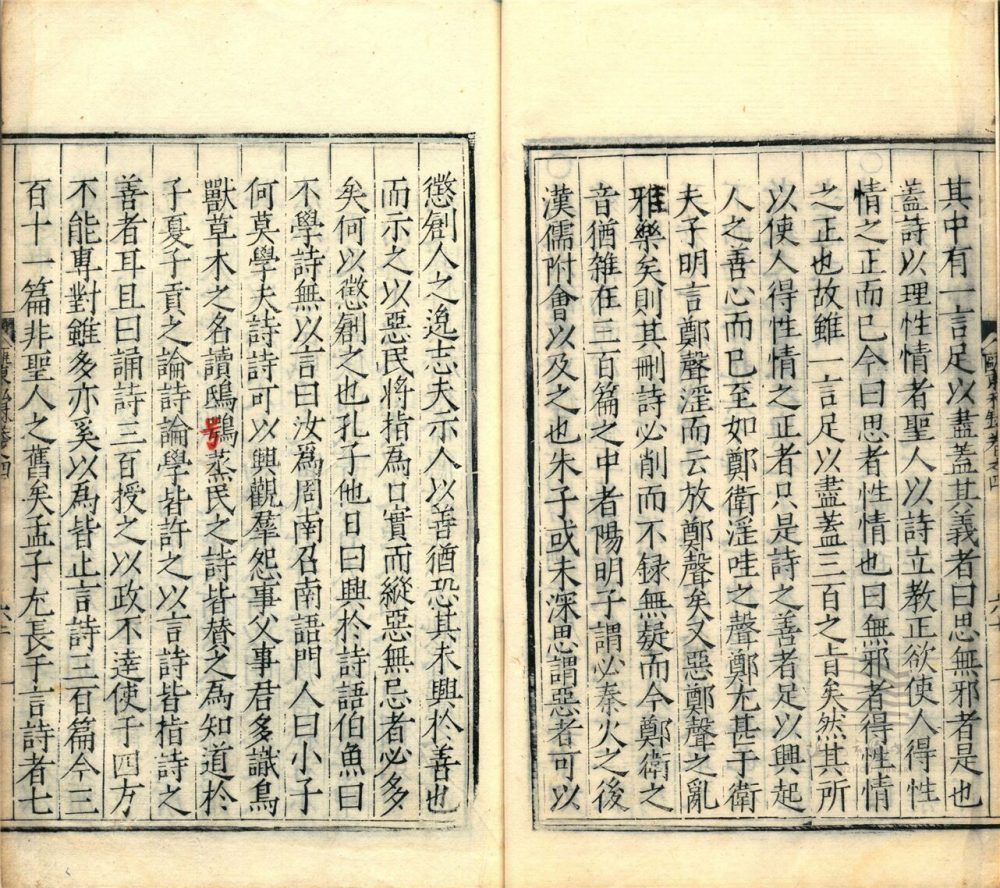 其中有一言足以盡蓋其義者曰思無邪者是也
蓋詩以理性情者聖人以詩立教正欲使人得性
情之正而已今曰思者性情也曰無邪者得性情
之正也故雖一言足以盡蓋三百之旨矣然其所
以使人得性情之正者只是詩之善者足以興起
人之善心而已至如鄭衛淫哇之聲鄭尤甚于衛
夫子明言鄭聲淫而云放鄭聲矣又惡鄭聲之亂
雅樂矣則其刪詩必削而不録無疑而今鄭衛之
音猶雜在三百篇之中者陽明子謂必秦火之後
漢儒附會以及之也朱子或未深思謂惡者可以
懲創人之逸志夫示人以善猶恐其未興於善也
而示之以惡民將指為口實而縱惡無忌者必多
矣何以懲創之也孔子他日曰興於詩語伯魚曰
不學詩無以言曰汝為周南召南語門人曰小子
何莫學夫詩詩可以興觀羣怨事父事君多識鳥
獸草木之名讀鴟鴞蒸民之詩皆賛之為知道於
子夏子貢之論詩論學皆許之以言詩皆指詩之
善者耳且曰誦詩三百授之以政不達使于四方
不能專對雖多亦奚以為皆止言詩三百篇今三
百十一篇非聖人之舊矣孟子尤長于言詩者七